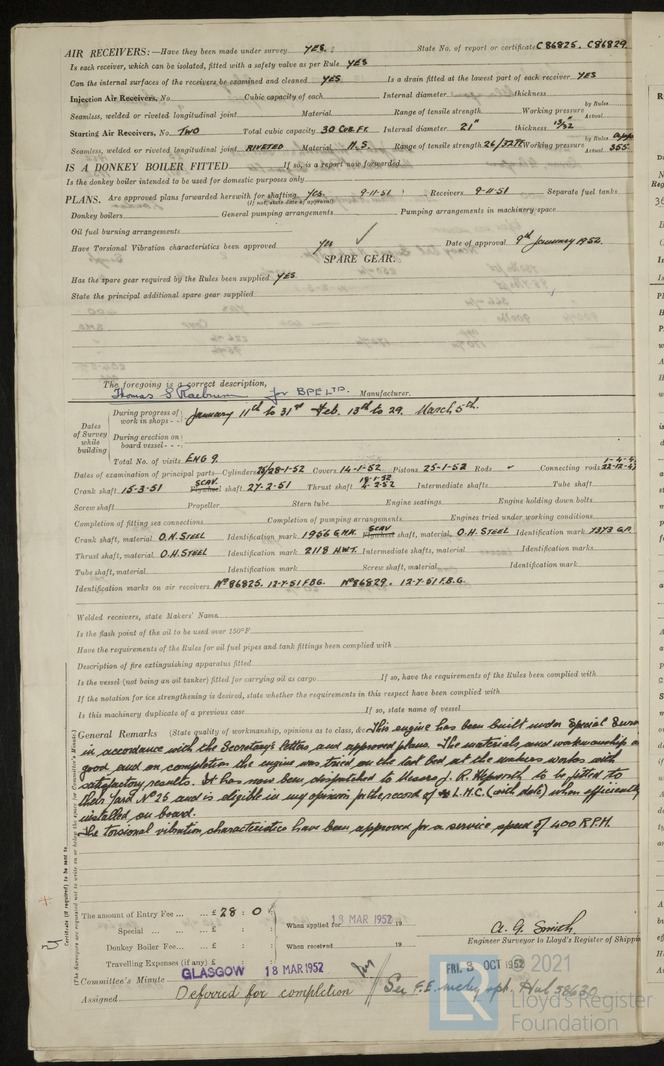 AIR RECEIVERS:—Have they been made under survey YES. State No. of report or certificate C86825. C86829
Is each receiver, which can be isolated, fitted with a safety valve as per Rule YES
Can the internal surfaces of the receivers be examined and cleaned YES Is a drain fitted at the lowest part of each receiver YES
Injection Air Receivers, No. Cubic capacity of each Internal diameter thickness
Seamless, welded or riveted longitudinal joint Material Range of tensile strength Working pressure by Rules Actual
Starting Air Receivers, No. TWO Total cubic capacity 30 CUB FT. Internal diameter 21" thickness 13/32"
Seamless, welded or riveted longitudinal joint RIVETED Material M.S. Range of tensile strength 26/32 Working pressure by Rules Actual 355
IS A DONKEY BOILER FITTED If so, is a report now forwarded
Is the donkey boiler intended to be used for domestic purposes only
PLANS. Are approved plans forwarded herewith for shafting Yes. 9-11-51 Receivers 9-11-51 Separate fuel tanks
(If not, state date of approval)
Donkey boilers General pumping arrangements Pumping arrangements in machinery space
Oil fuel burning arrangements
Have Torsional Vibration characteristics been approved yes Date of approval 9th January 1952.
SPARE GEAR.
Has the spare gear required by the Rules been supplied YES
State the principal additional spare gear supplied
The foregoing is a correct description,
Thomas S Raeburn for BPE LTD. Manufacturer.
Dates of Survey while building
During progress of work in shops - - January 11th to 31st Feb. 13th to 29. March 5th.
During erection on board vessel - - -
Total No. of visits ENG 9.
Dates of examination of principal parts—Cylinders 25/28-1-52 Covers 14-1-52 Pistons 25-1-52 Rods Connecting rods
Crank shaft 15-3-51 SCAV. Flywheel shaft 27-2-51 Thrust shaft Intermediate shafts Tube shaft
Screw shaft Propeller Stern tube Engine seatings Engine holding down bolts
Completion of fitting sea connections Completion of pumping arrangements Engines tried under working conditions
Crank shaft, material O.H.STEEL Identification mark 1956 G.M.K. SCAV Flywheel shaft, material O.H.STEEL Identification mark 7373 G.P.
Thrust shaft, material O.H.STEEL Identification mark 2118 H.W.T. Intermediate shafts, material Identification marks
Tube shaft, material Identification mark Screw shaft, material Identification mark
Identification marks on air receivers No 86825. 12-7-51 F.B.G. No 86829. 12-7-51 F.B.G.
Welded receivers, state Makers' Name
Is the flash point of the oil to be used over 150°F
Have the requirements of the Rules for oil fuel pipes and tank fittings been complied with
Description of fire extinguishing apparatus fitted
Is the vessel (not being an oil tanker) fitted for carrying oil as cargo If so, have the requirements of the Rules been complied with
If the notation for ice strengthening is desired, state whether the requirements in this respect have been complied with
Is this machinery duplicate of a previous case If so, state name of vessel
General Remarks (State quality of workmanship, opinions as to class, &c. This engine has been built under Special Surv
in accordance with the Secretary's letters, and approved plans. The materials and workmanship a
good and on completion the engine was tried on the test bed at the makers works with
satisfactory results. It has now been dispatched to Messrs J. R. Hepworth to be fitted to
their Yard No 25 and is eligible in my opinion for the record of L.M.C. (with date) when efficiently
installed on board.
The torsional vibration characteristics have been approved for a service speed of 400 R.P.M.
Certificate (if required) to be sent to
(The Surveyors are requested not to write on or below the space for Committee's Minute.)
The amount of Entry Fee ... ... £ 28 : 0 When applied for 13 MAR 1952 19
Special ... ... £ : A. G. Smith.
Donkey Boiler Fee... ... £ : When received 19 Engineer Surveyor to Lloyd's Register of Shippin
Travelling Expenses (if any) £ :
Committee's Minute GLASGOW 18 MAR 1952 FRI. 3 OCT 1952
Assigned Deferred for completion See F.E. mchy rpt. Hul 58630
© 2021
LR
Lloyd's Register
Foundation